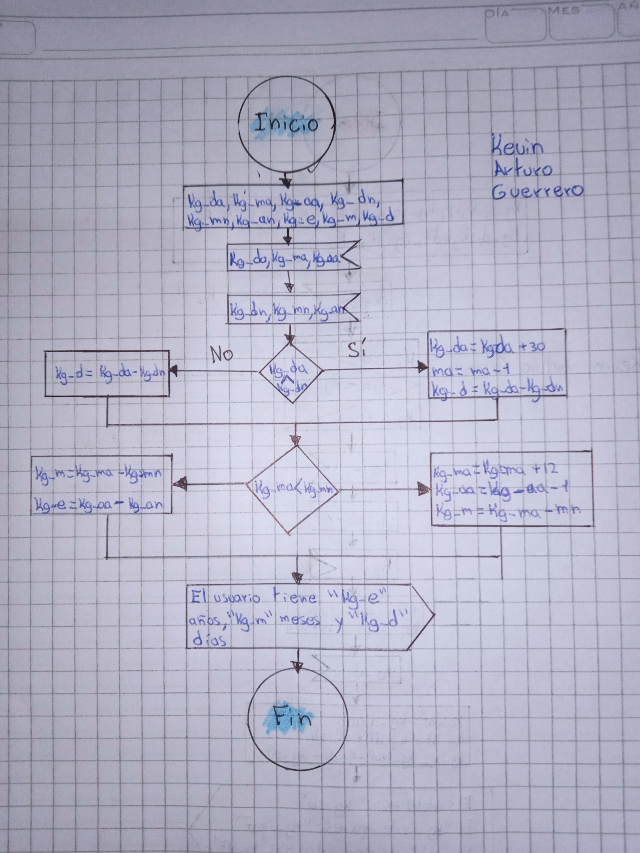 DÍA
MES
AÑ
Inicio
Kevin
Arturo
Guerrero
Kg_da, Kg_ma, Kg_aa, Kg_dn,
Kg_mn, Kg_an, Kg_e, Kg_m, Kg_d
Kg_da, Kg_ma, Kg_aa
Kg_dn, Kg_mn, Kg_an
No
Sí
Kg_da
<
Kg_dn
Kg_d = Kg_da-Kg_dn
Kg_da = Kg_da + 30
ma = ma - 1
Kg_d = Kg_da-Kg_dn
Kg_ma < Kg_mn
Kg_m = Kg_ma - Kg_mn
Kg_e = Kg_aa - Kg_an
Kg_ma = Kg_ma + 12
Kg_aa = Kg_aa - 1
Kg_m = Kg_ma - mn
El usuario tiene "Kg_e"
años, "Kg_m" meses y "Kg_d"
días
Fin